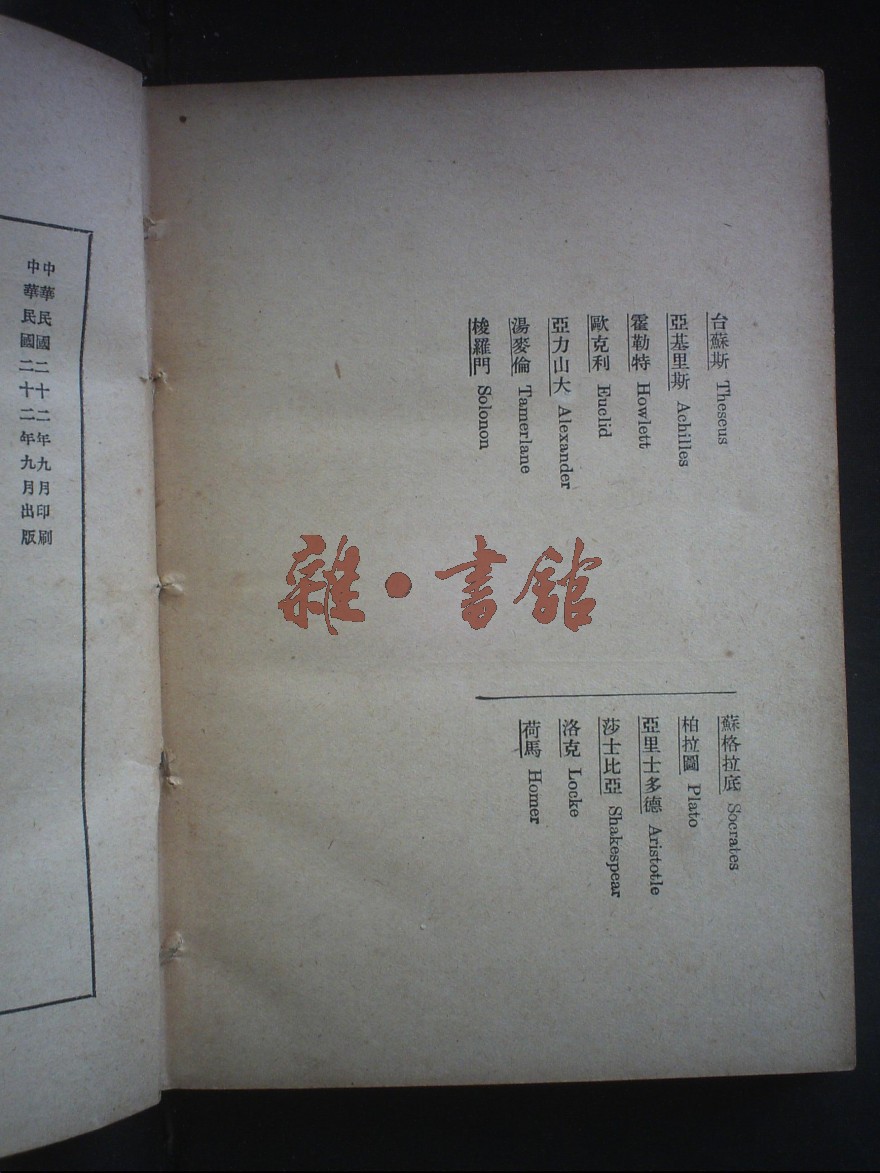 台蘇斯 Theseus
亞基里斯 Achilles
霍勒特 Howlett
歐克利 Euclid
亞力山大 Alexander
湯麥倫 Tamerlane
梭羅門 Solonon
蘇格拉底 Socrates
柏拉圖 Plato
亞里士多德 Aristotle
莎士比亞 Shakespear
洛克 Locke
荷馬 Homer
中華民國二十二年九月印刷
中華民國二十二年九月出版
雜·書館